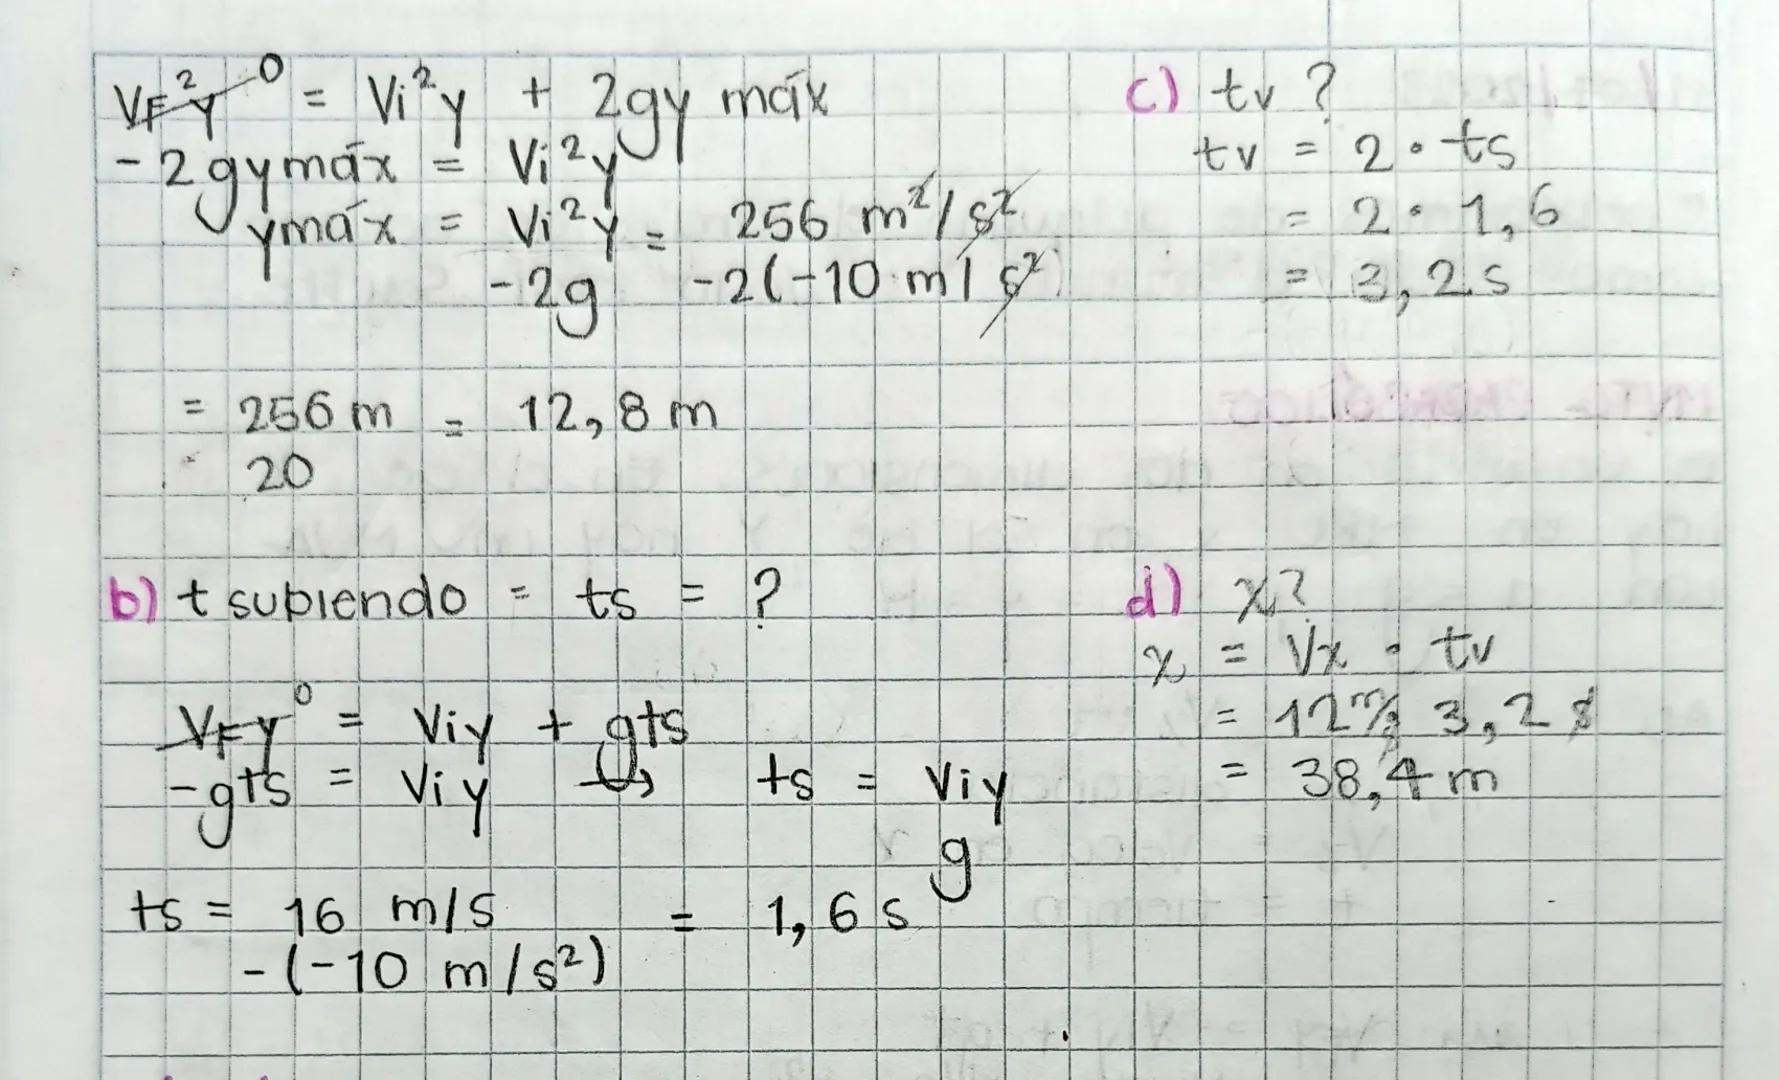 VF²y⁰ = Vi²y + 2gy máx
-2gymáx = Vi²y
ymáx = Vi²y = 256 m²/s²
-2g -2(-10 m/s²)
= 256 m = 12,8 m
20
b) t subiendo = ts = ?
VFy⁰ = Viy + gts
-gts = Viy ↳ ts = Viy
g
ts = 16 m/s = 1,6 s
-(-10 m/s²)
c) tv ?
tv = 2 · ts
= 2 · 1,6
= 3,2 s
d) x?
x = Vx · tv
= 12 m/s 3,2 s
= 38,4 m